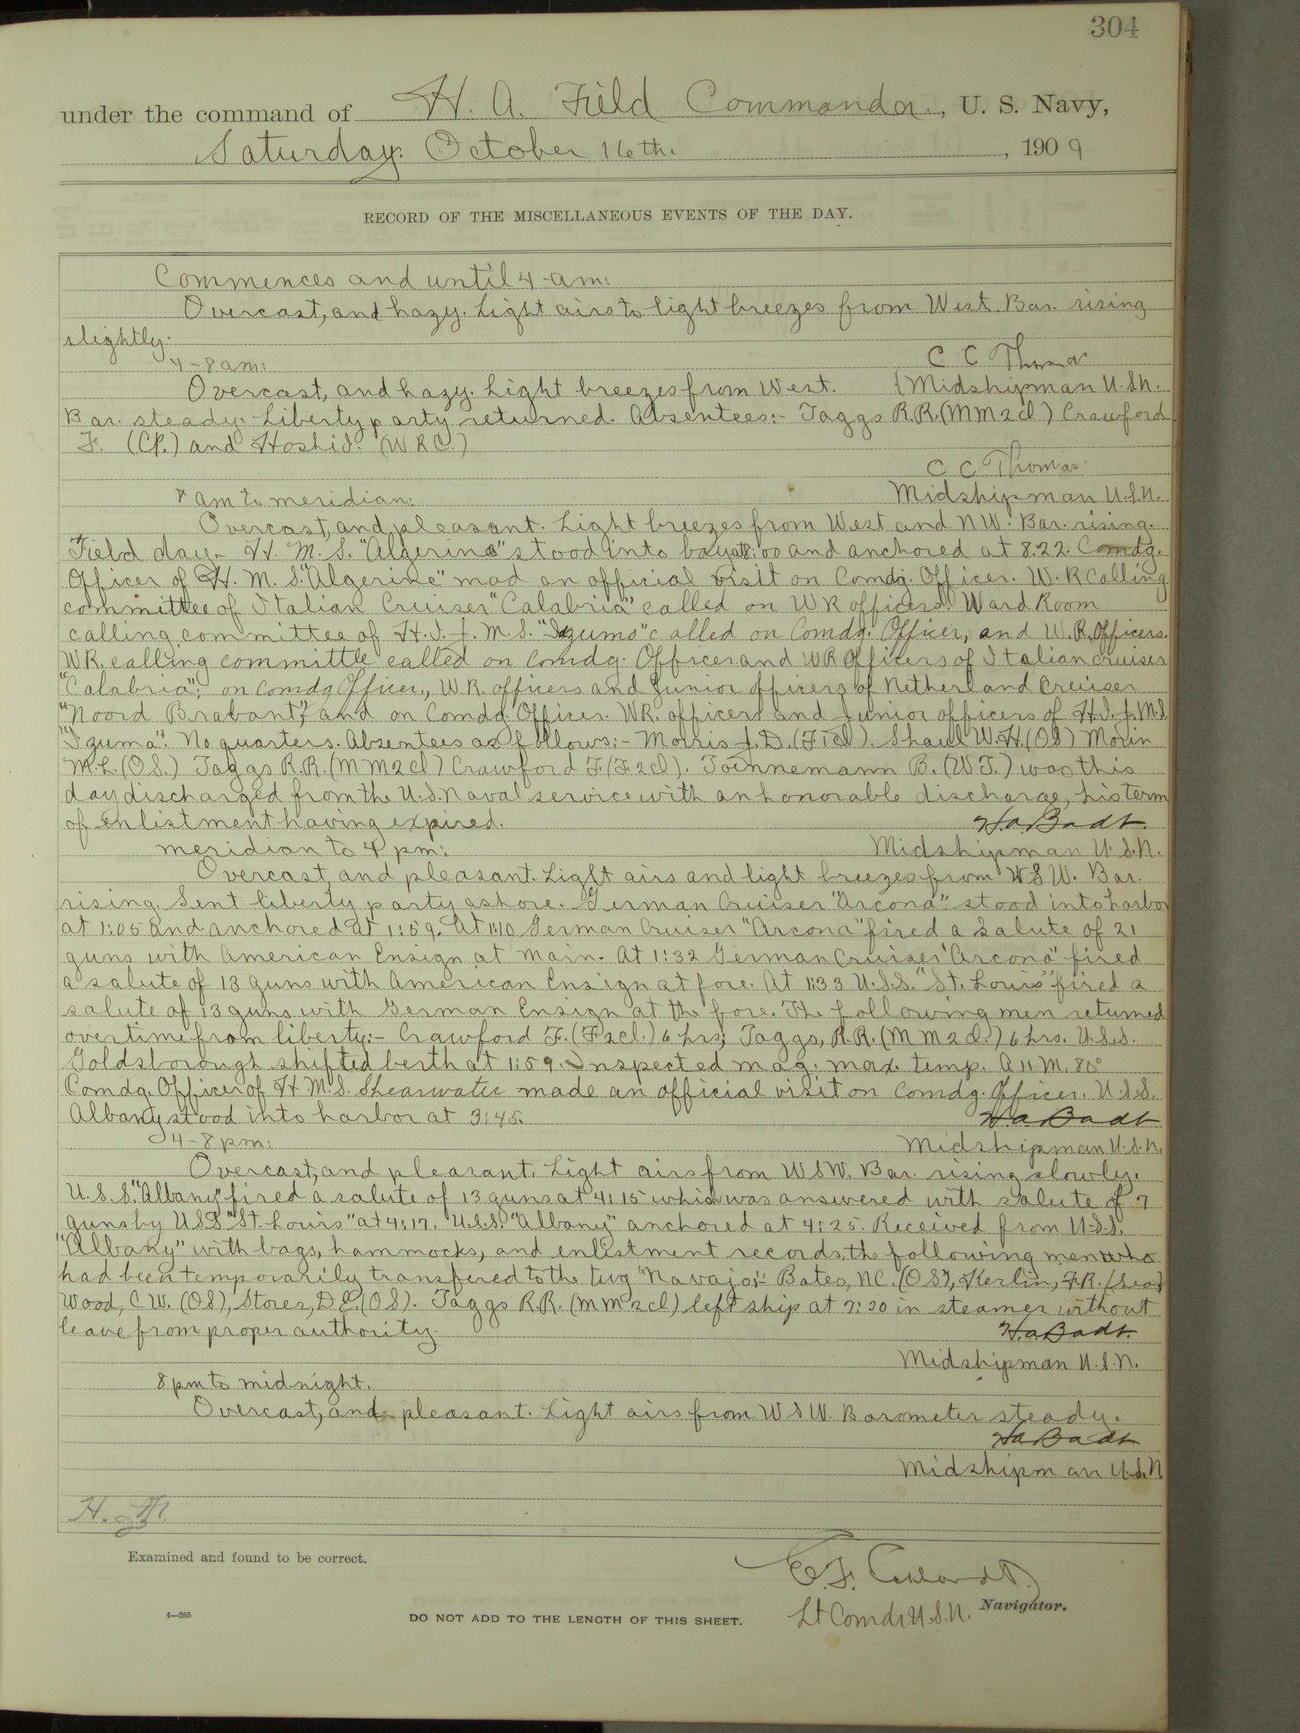 304
under the command of H. A. Field Commander, U. S. Navy,
Saturday. October 16th. , 1909
RECORD OF THE MISCELLANEOUS EVENTS OF THE DAY.
Commences and until 4 am:
Overcast, and hazy. Light airs to light breezes from West. Bar. rising
slightly.
C C Thomas
4-8 am:
Overcast, and hazy. Light breezes from West. Midshipman U.S.N.
Bar. steady. Liberty party returned. Absentees:- Taggs R.R. (MM2cl) Crawford
F. (CP.) and Hoshi S. (W.R.C.)
C C Thomas
8 am to meridian: Midshipman U.S.N.
Overcast, and pleasant. Light breezes from West and NW. Bar. rising.
Field day. H. M. S. "Algerine" stood into bay at 8:00 and anchored at 8.22. Comdg.
Officer of H. M. S. "Algerine" mad an official visit on Comdg. Officer. W. R calling
committee of Italian Cruiser "Calabria" called on WR officers. Ward Room
calling committee of H. I. J. M. S. "Idzumo" called on Comdg. Officer, and W. R. Officers.
WR. calling committee called on Comdg. Officer and WR Officers of Italian cruiser
"Calabria"; on Comdg Officer, W.R. officers and Junior officers of Netherland Cruiser
"Noord Brabant"; and on Comdg. Officer. WR. officers and Junior officers of H.I.J.M.S
"Izuma". No quarters. Absentees as follows:- Morris J.D. (F1cl). Shaul W.H. (OS) Morin
M.L. (O.S.) Taggs R.R. (MM2cl) Crawford F. (F2cl). Toennemann B. (WT.) was this
day discharged from the U.S. Naval service with an honorable discharge, his term
of enlistment having expired. H.A. Badt.
meridian to 4 pm: Midshipman U.S.N.
Overcast, and pleasant. Light airs and light breezes from WSW. Bar.
rising. Sent liberty party ashore. German Cruiser "Arcona" stood into harbor
at 1:05 and anchored at 1:59. At 1:10 German Cruiser "Arcona" fired a salute of 21
guns with American Ensign at main. At 1:32 German Cruiser "Arcona" fired
a salute of 13 guns with American Ensign at fore. At 1:33 U.S.S. "St. Louis" fired a
salute of 13 guns with German Ensign at the fore. The following men returned
overtime from liberty:- Crawford F. (F2cl.) 6 hrs; Taggs, R.R. (MM2cl.) 6 hrs. U.S.S.
Goldsborough shifted berth at 1:59. Inspected mag. max. temp. A 11 M. 80°
Comdg. Officer of H M.S. Shearwater made an official visit on Comdg. Officer. U.S.S.
Albany stood into harbor at 3:45. H a Badt
4-8 pm: Midshipman U.S.N.
Overcast, and pleasant. Light airs from WSW. Bar. rising slowly.
U.S.S. "Albany" fired a salute of 13 guns at 4:15 which was answered with salute of 7
guns by USS "St. Louis" at 4:17. U.S.S. "Albany" anchored at 4:25. Received from U.S.S.
"Albany" with bags, hammocks, and enlistment records, the following men who
had been temporarily transfered to the tug "Navajo":- Bates, N.C. (OS), Kerlin, F.R. (Sea)
Wood, C.W. (OS), Storer, D.E. (OS). Taggs R.R. (MM2cl) left ship at 7:30 in steamer without
leave from proper authority. H.a Badt.
Midshipman U.S.N.
8 pm to midnight.
Overcast, and pleasant. Light airs from WSW. Barometer steady.
Ha Badt
Midshipman U.S.N
Examined and found to be correct.
Lt Comdr U.S.N. Navigator.
4—265
DO NOT ADD TO THE LENGTH OF THIS SHEET.